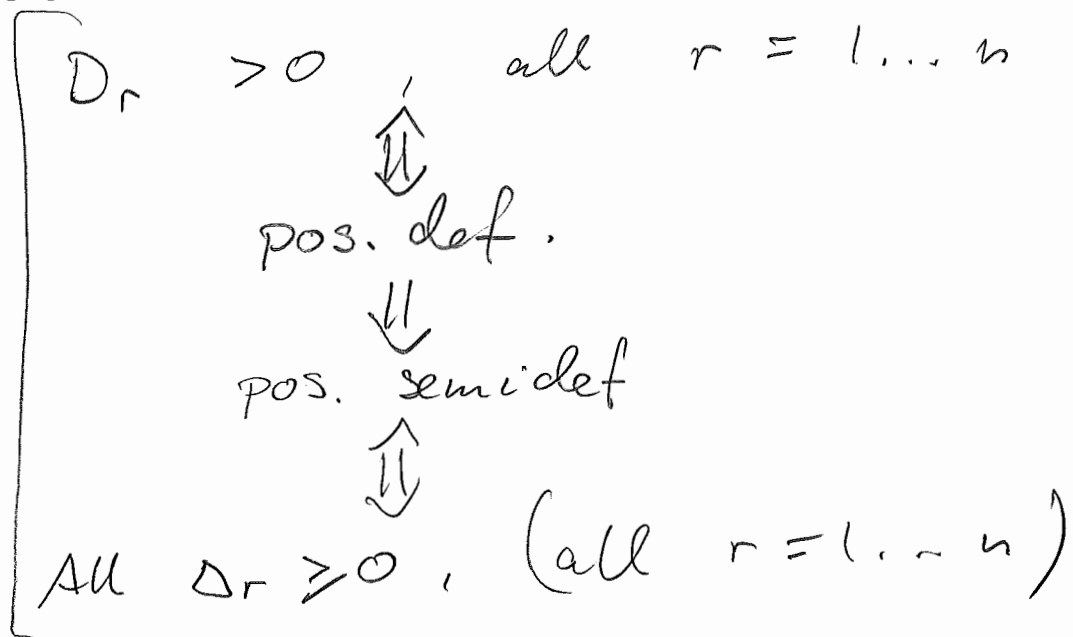 Dr >0 , all r = 1... n
⇕
pos. def.
⇓
pos. semidef
⇕
All Δr ≥0 , (all r = 1... n)